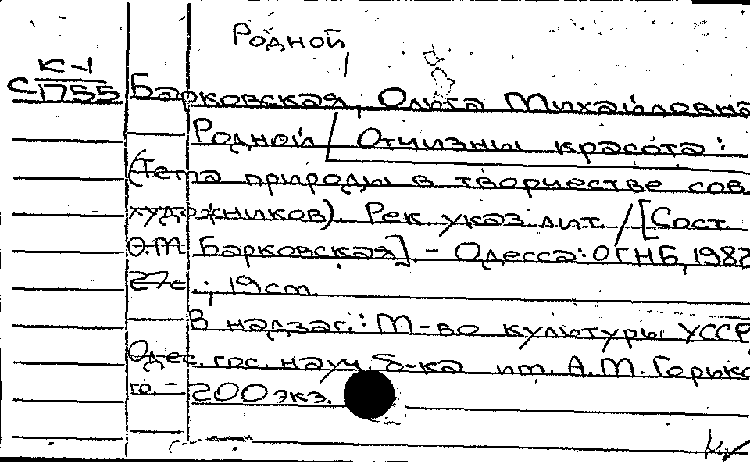 Родной
К-1
С1755
Барковская, Ольга Михайловна
Родной / Отчизны красота:
(Тема природы в творчестве сов.
художников). Рек. указ. лит. / [Сост.
О.М. Барковская] - Одесса: ОГНБ, 1982
27с.; 19 cm.
В надзаг.: М-во культуры УССР,
Одес. гос. науч. б-ка им. А.М. Горько
го. - 200 экз.